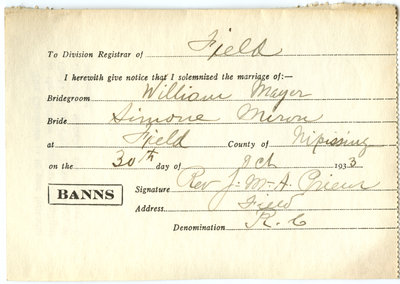 To Division Registrar of Field
I herewith give notice that I solemnized the marriage of:—
Bridegroom William Mayer
Bride Simone Miron
at Field County of Nipissing
on the 30th day of Oct 1933
BANNS
Signature Rev J. M. A. Prieur
Address Field
Denomination R. C